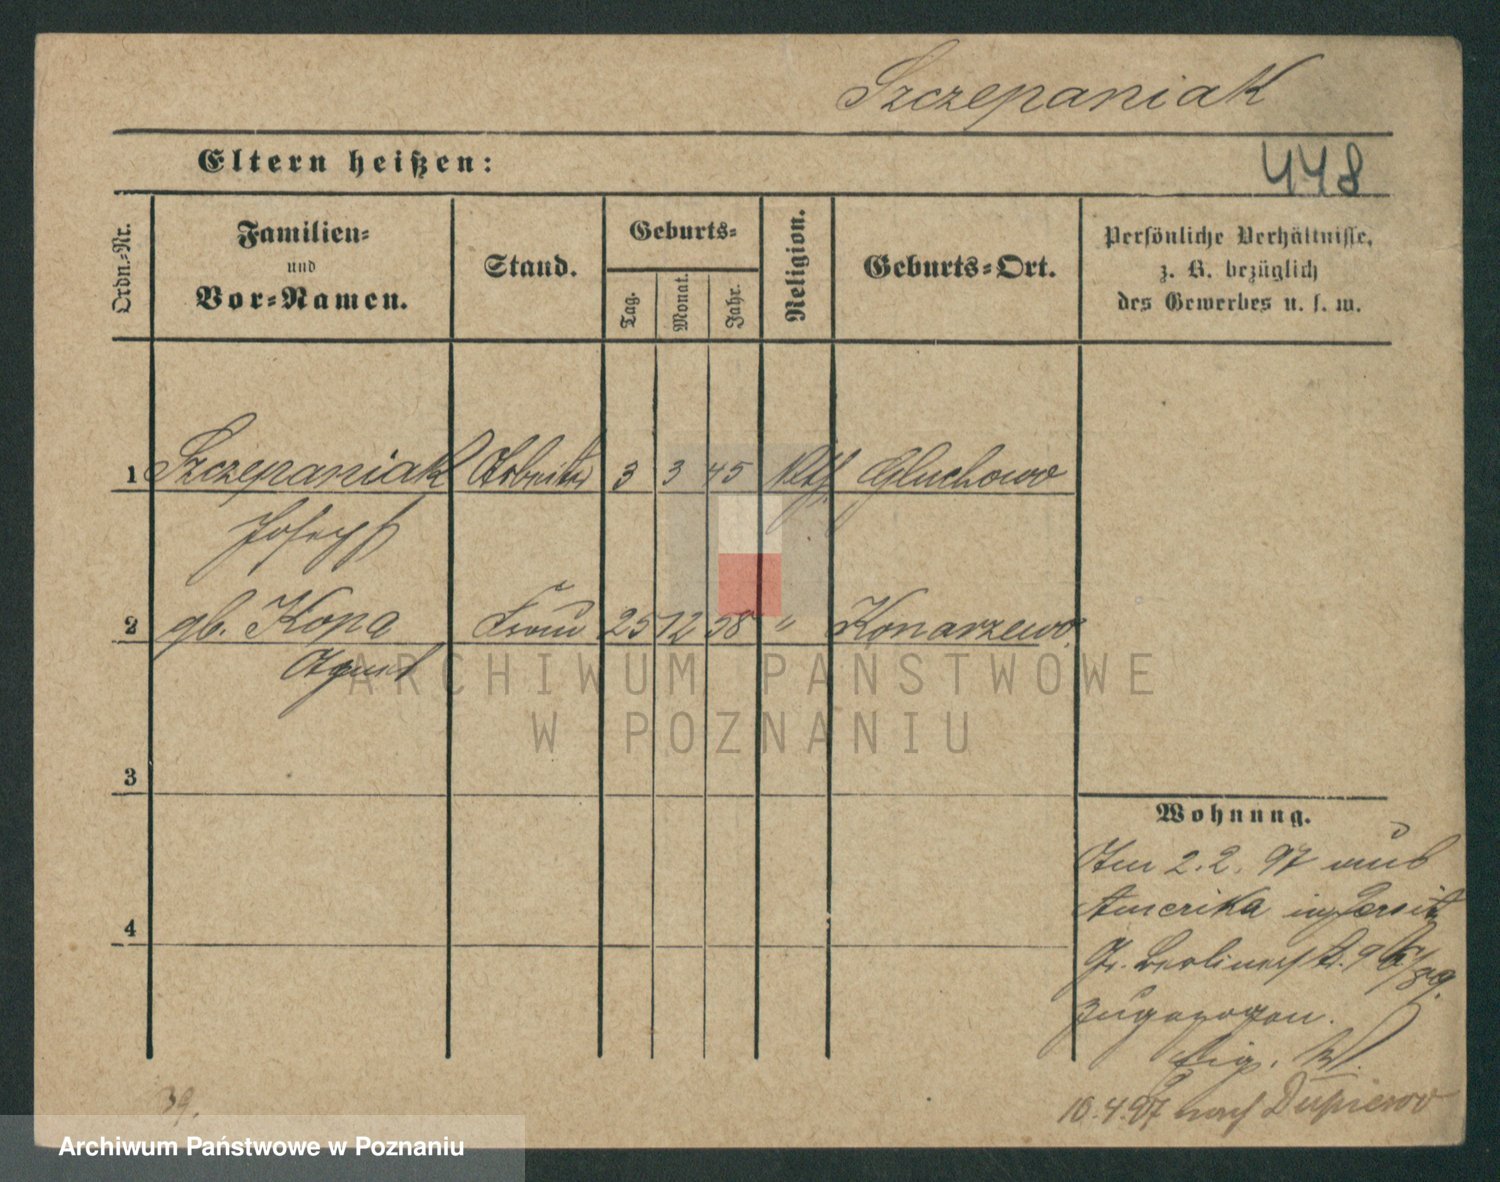 Szczepaniak
Eltern heißen:
448
Ordn.-Nr.
Familien-
und
Vor-Namen.
Stand.
Geburts-
Tag.
Monat.
Jahr.
Religion.
Geburts-Ort.
Persönliche Verhältnisse,
z. B. bezüglich
des Gewerbes u. s. w.
1 Szczepaniak Arbeiter 3 3 45 kth. Gluchowo
Joseph
2 gb. Kopa Frau 25 12 58 " Konarzewo
Agnes
ARCHIWUM PAŃSTWOWE
W POZNANIU
3
Wohnung.
Am 2.2.97 aus
Amerika
4
Gr. Berlinerstr.
zugezogen.
10.4.97 nach Dupiewo
39.
Archiwum Państwowe w Poznaniu